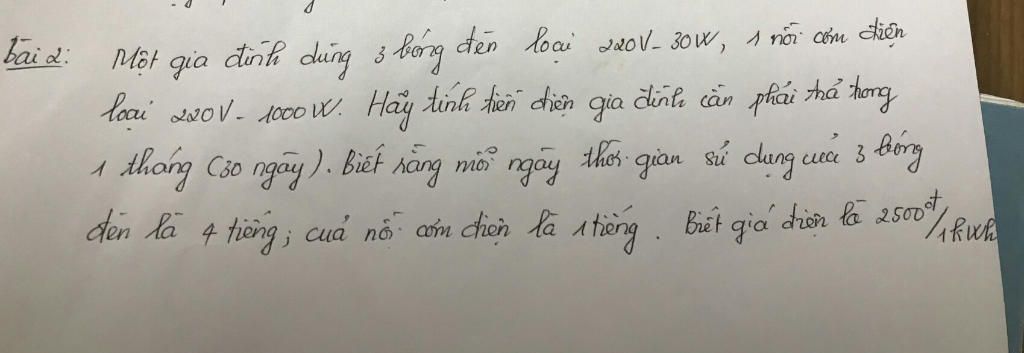 bài 2: Một gia đình dùng 3 bóng đèn loại 220V-30W, 1 nồi cơm điện
loại 220V-1000W. Hãy tính tiền điện gia đình cần phải trả trong
1 tháng (30 ngày). Biết rằng mỗi ngày thời gian sử dụng của 3 bóng
đèn là 4 tiếng; của nồi cơm điện là 1 tiếng. Biết giá điện là 2500đ/1kWh